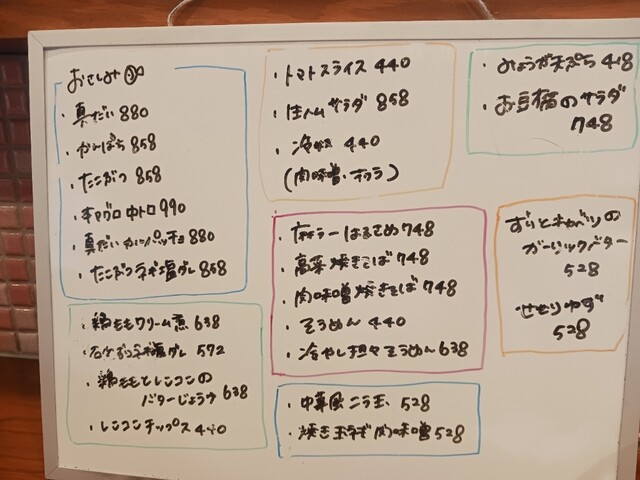 おさしみ
・真だい 880
・かんぱち 858
・たこぶつ 858
・本マグロ 中トロ 990
・真だい カルパッチョ 880
・たこぶつ ネギ塩ダレ 858
・鶏ももクリーム煮 638
ネギ塩ダレ 572
・鶏ももとレンコンの
バターじょうゆ 638
・レンコンチップス 440
・トマトスライス 440
・生ハム サラダ 858
・冷奴 440
(肉味噌・オクラ)
・麻辣ラーはるさめ 748
・高菜焼きそば 748
・肉味噌焼きそば 748
・そうめん 440
・冷やし担々そうめん 638
・中華風ニラ玉 528
・焼き玉ネギ肉味噌 528
・みょうが天ぷら 418
・お豆腐のサラダ
748
キャベツの
ガーリックバター
528
せせりゆず
528